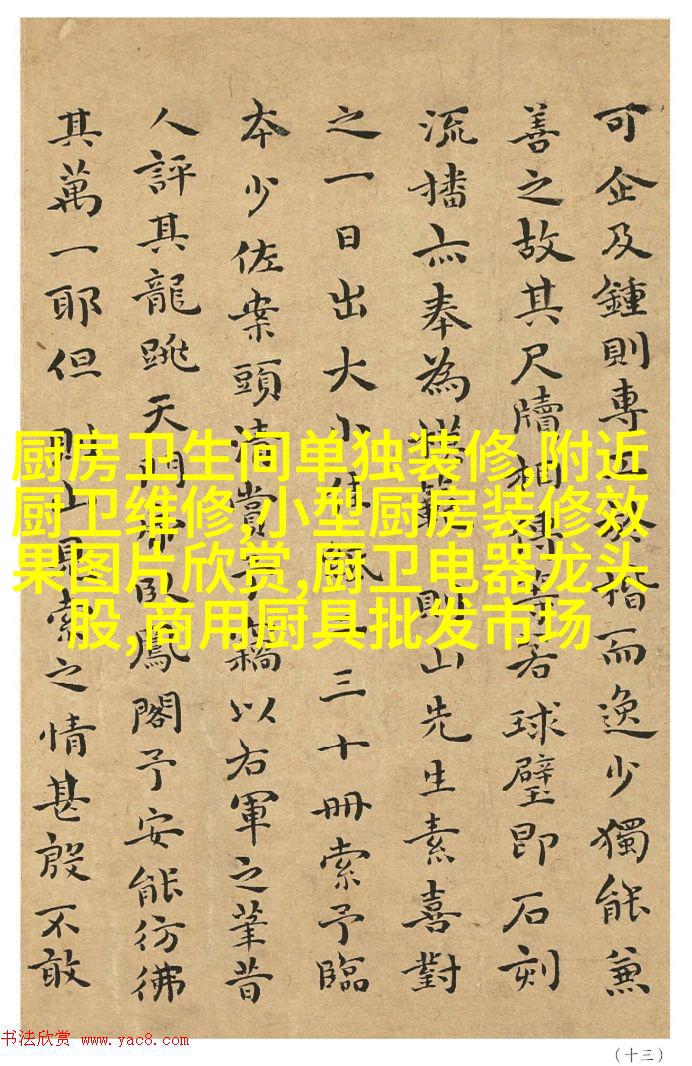 可企及鍾則專工於指而逸少獨能兼
善之故其尺牘相傳等若球璧即石刻
流播亦奉為楷範則山先生素喜對
之一日出大小三十冊索予臨
本少佐案頭清賞予以右軍之筆昔
人評其龍跳天門虎臥鳳閣予安能彷彿
其萬一耶但則山見索之情甚殷不敢
厨房卫生间单独装修,附近
厨卫维修,小型厨房装修效
果图片欣赏,厨卫电器龙头
股,商用厨具批发市场
书法欣赏 www.yac8.com
（十三）